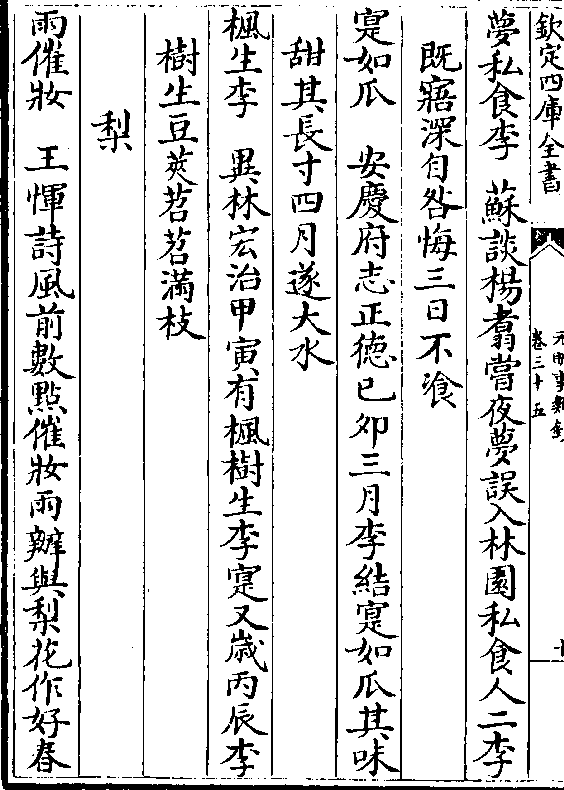 欽定四庫全書
元明事類鈔
卷三十五
夢私食李　蘇談楊翥嘗夜夢誤入林園私食人二李
既寤深自咎悔三日不飡
寔如瓜　安慶府志正德己卯三月李結寔如瓜其味
甜其長寸四月遂大水
楓生李　異林宏治甲寅有楓樹生李寔又歲丙辰李
樹生豆莢苕苕滿枝
梨
雨催妝　王惲詩風前數點催妝雨辦與梨花作好春